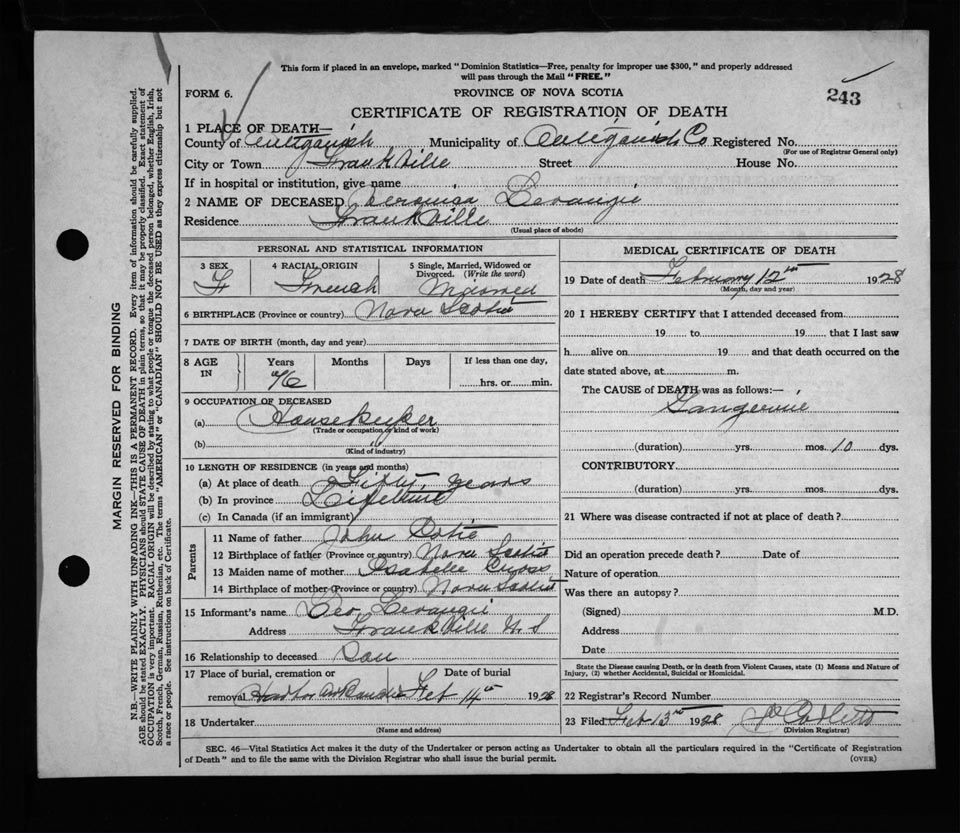 This form if placed in an envelope, marked "Dominion Statistics—Free, penalty for improper use $300," and properly addressed
will pass through the Mail "FREE."
FORM 6.
PROVINCE OF NOVA SCOTIA
243
CERTIFICATE OF REGISTRATION OF DEATH
1 PLACE OF DEATH—
County of Antiganish Municipality of Antiganish Co Registered No.
(For use of Registrar General only)
City or Town Frankville Street House No.
If in hospital or institution, give name
2 NAME OF DECEASED Levangie
Residence Frankville
(Usual place of abode)
PERSONAL AND STATISTICAL INFORMATION
3 SEX F
4 RACIAL ORIGIN French
5 Single, Married, Widowed or Divorced. (Write the word)
6 BIRTHPLACE (Province or country) Nova Scotia
7 DATE OF BIRTH (month, day and year)
8 AGE IN Years 76 Months Days If less than one day,
hrs. or min.
9 OCCUPATION OF DECEASED
(a) Housekeeper
(Trade or occupation or kind of work)
(b)
(Kind of industry)
10 LENGTH OF RESIDENCE (in years and months)
(a) At place of death Fifty years
(b) In province Lifetime
(c) In Canada (if an immigrant)
Parents
11 Name of father John
12 Birthplace of father (Province or country) Nova Scotia
13 Maiden name of mother Isabelle
14 Birthplace of mother (Province or country) Nova Scotia
15 Informant's name Levangie
Address Frankville N.S
16 Relationship to deceased Son
17 Place of burial, cremation or removal Date of burial
Feb 14th 1928
18 Undertaker
(Name and address)
MEDICAL CERTIFICATE OF DEATH
19 Date of death February 12th 1928
(Month, day and year)
20 I HEREBY CERTIFY that I attended deceased from
19 to 19 that I last saw
h alive on 19 and that death occurred on the
date stated above, at m.
The CAUSE of DEATH was as follows:—
Gangerine
(duration) yrs. mos. 10 dys.
CONTRIBUTORY
(duration) yrs. mos. dys.
21 Where was disease contracted if not at place of death?
Did an operation precede death? Date of
Nature of operation
Was there an autopsy?
(Signed) M.D.
Address
Date
State the Disease causing Death, or in death from Violent Causes, state (1) Means and Nature of
Injury, (2) whether Accidental, Suicidal or Homicidal.
22 Registrar's Record Number
23 Filed Feb 13rd 1928
(Division Registrar)
SEC. 46—Vital Statistics Act makes it the duty of the Undertaker or person acting as Undertaker to obtain all the particulars required in the "Certificate of Registration
of Death" and to file the same with the Division Registrar who shall issue the burial permit.
(OVER)
MARGIN RESERVED FOR BINDING
N.B.—WRITE PLAINLY WITH UNFADING INK—THIS IS A PERMANENT RECORD. Every item of information should be carefully supplied.
AGE should be stated EXACTLY. PHYSICIANS should STATE CAUSE OF DEATH in plain terms, so that it may be properly classified. Exact statement of
OCCUPATION is very important. RACIAL ORIGIN will be described by stating to what people or tongue the deceased person belonged, whether English, Irish,
Scotch, French, German, Russian, Ruthenian, etc. The terms "AMERICAN" or "CANADIAN" SHOULD NOT BE USED as they express citizenship but not
a race or people. See instructions on back of Certificate.